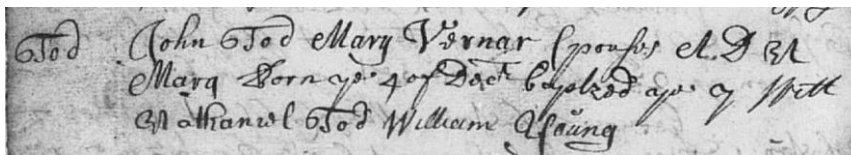 Tod John Tod Mary Vernar Spouses A. D. N
Mary Born ye 4 of Decr baptzed ye 7 Witt
Nathaniel Tod William Young